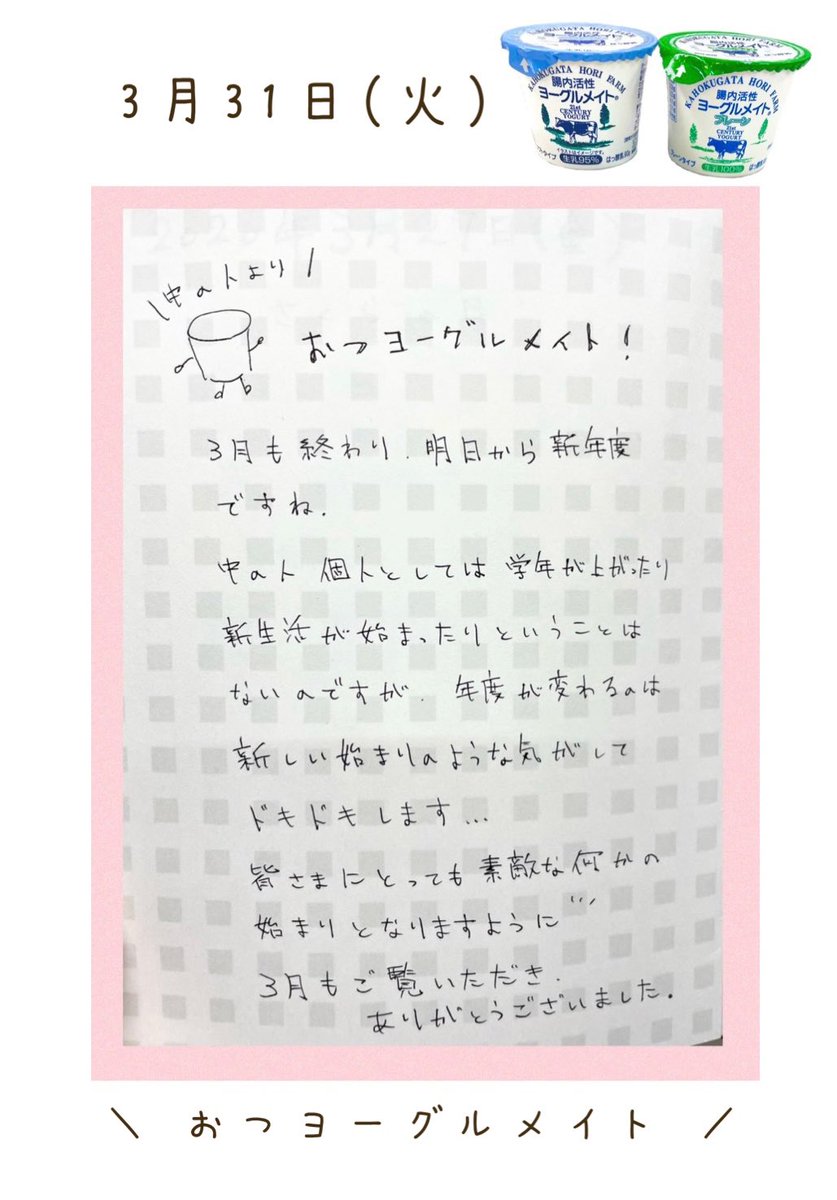 3月31日(火)
KAHOKUGATA HORI FARM
腸内活性
ヨーグルメイト®
21st
CENTURY
YOGURT
イラストはイメージです。
生乳95%
KAHOKUGATA HORI FARM
腸内活性
ヨーグルメイト®
プレーン
21st
CENTURY
YOGURT
生乳100%
\中の人より/
おつヨーグルメイト!
3月も終わり、明日から新年度
ですね。
中の人 個人としては学年が上がったり
新生活が始まったりということは
ないのですが、年度が変わるのは
新しい始まりのような気がして
ドキドキします…
皆さまにとっても素敵な何かの
始まりとなりますように…
3月もご覧いただき、
ありがとうございました。
\ おつヨーグルメイト /